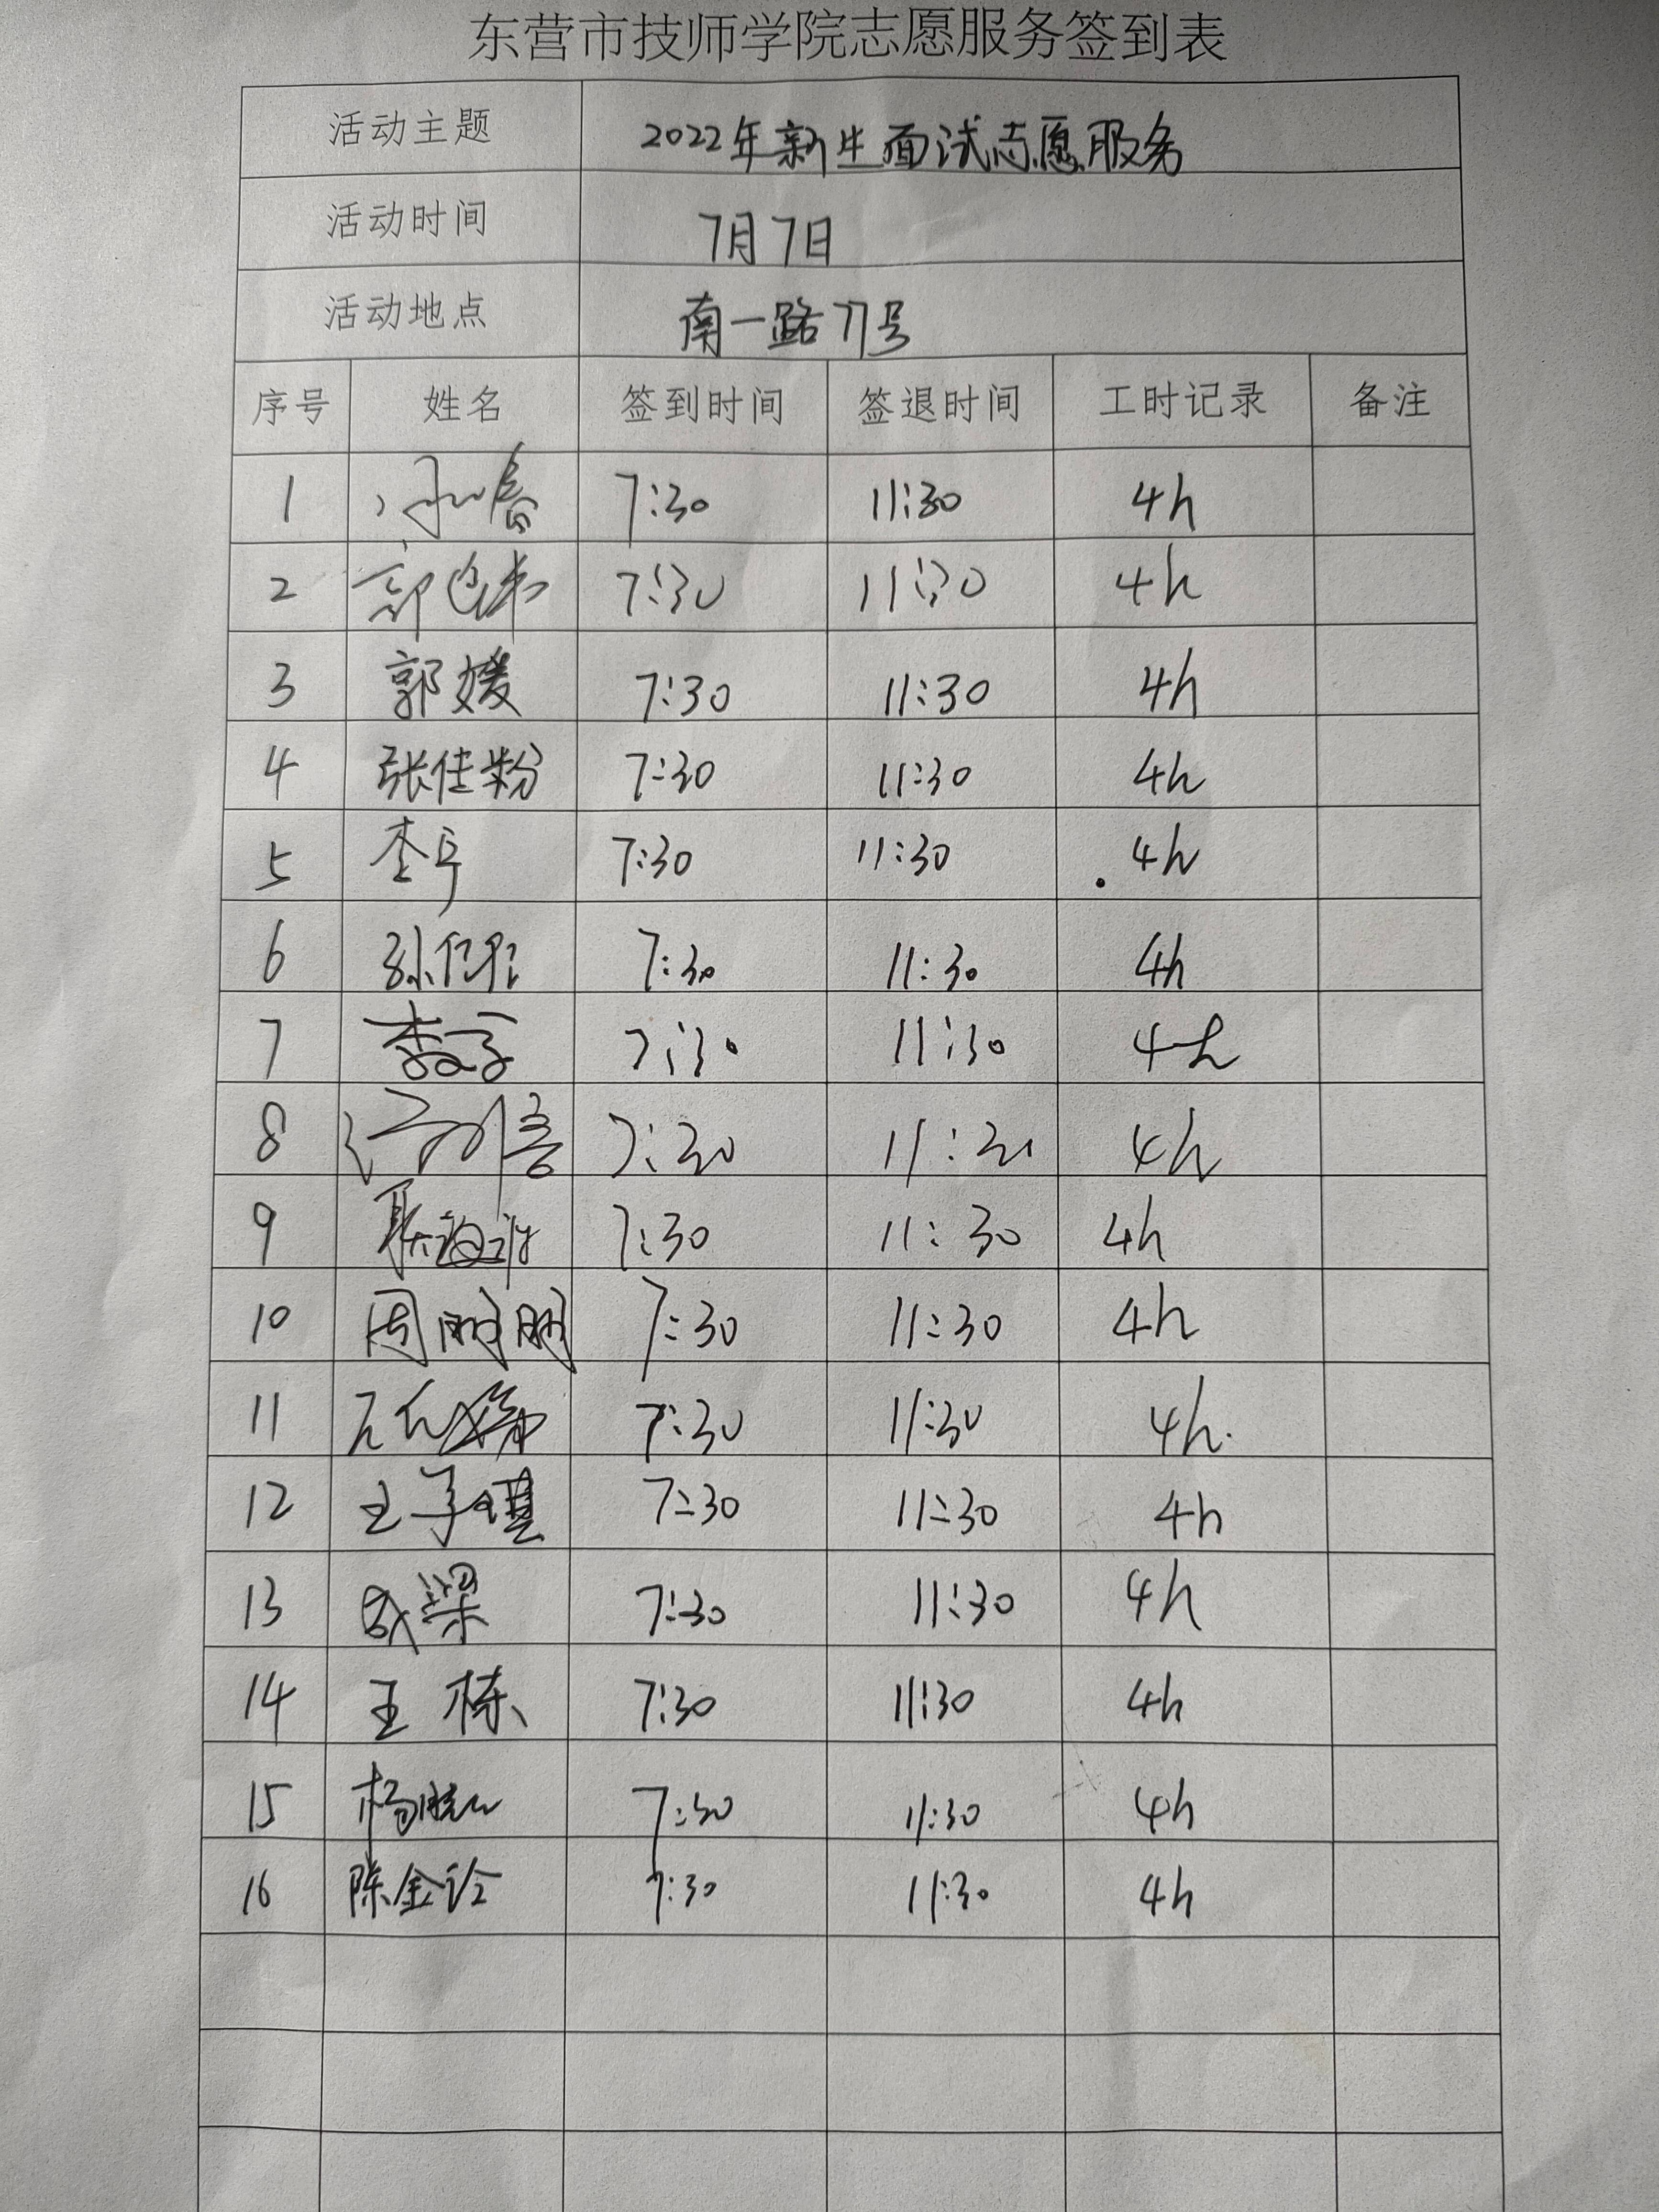 东营市技师学院志愿服务签到表
活动主题 2022年新生面试志愿服务
活动时间 7月7日
活动地点 南一路77号
序号 姓名 签到时间 签退时间 工时记录 备注
1 7:30 11:30 4h
2 7:30 11:30 4h
3 郭媛 7:30 11:30 4h
4 张佳粉 7:30 11:30 4h
5 李宁 7:30 11:30 4h
6 7:30 11:30 4h
7 7:30 11:30 4h
8 7:30 11:30 4h
9 7:30 11:30 4h
10 周 7:30 11:30 4h
11 7:30 11:30 4h.
12 王子琪 7:30 11:30 4h
13 成梁 7:30 11:30 4h
14 王栋 7:30 11:30 4h
15 杨 7:30 11:30 4h
16 陈金诠 7:30 11:30 4h